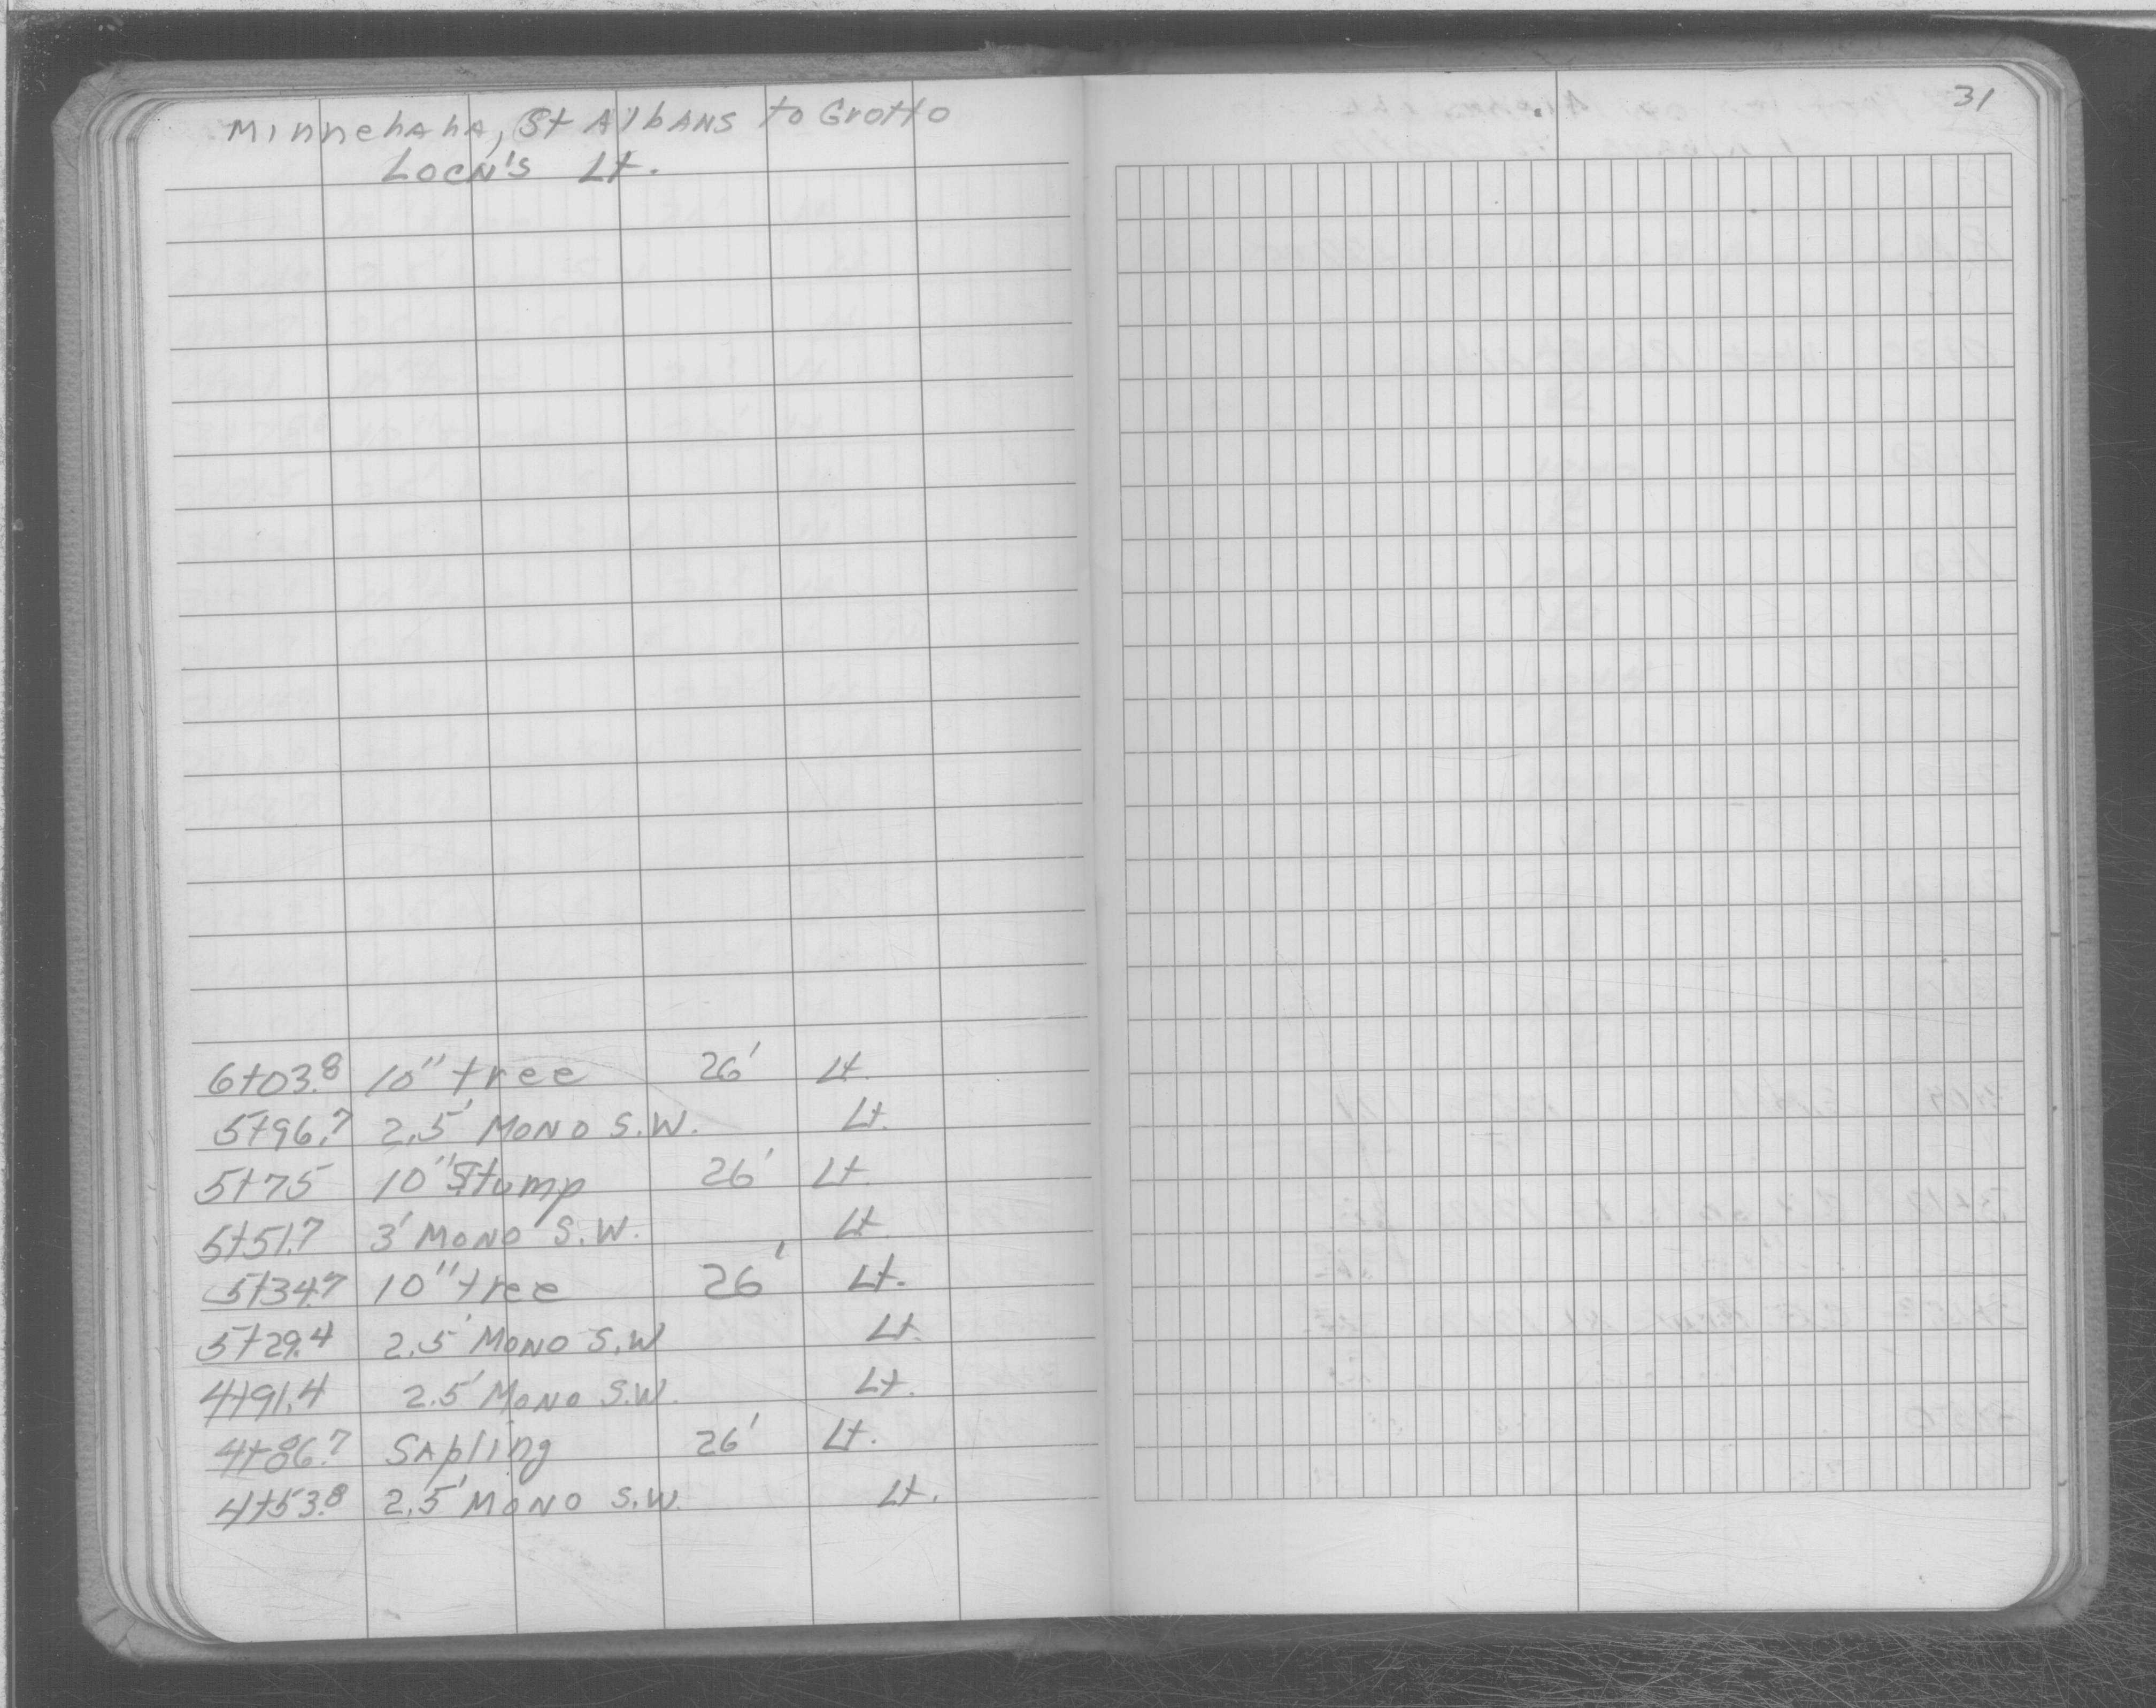 Minnehaha, St Albans to Grotto
Locn's Lt.
31
6+03.8 10" tree 26' Lt.
5+96.7 2.5' Mono S.W. Lt.
5+75 10" Stump 26' Lt.
5+51.7 3' Mono S.W. Lt.
5+34.7 10" tree 26' Lt.
5+29.4 2.5' Mono S.W Lt.
4+91.4 2.5' Mono S.W. Lt.
4+86.7 Sapling 26' Lt.
4+53.8 2.5' Mono S.W. Lt.